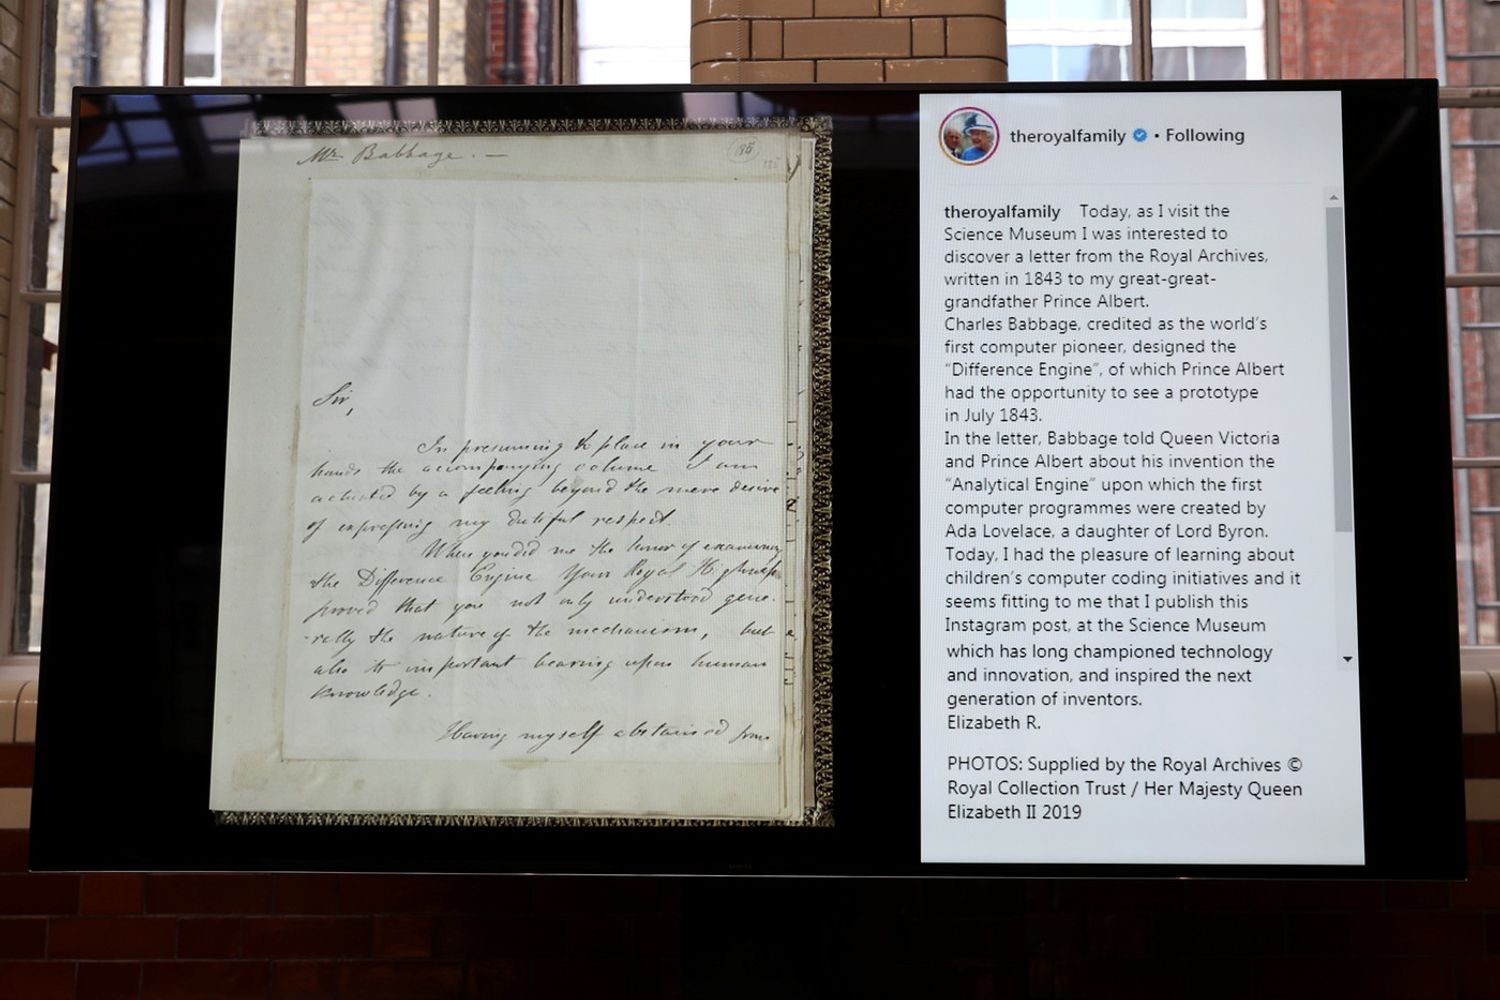 Mr. Babbage. —
185
185
Sir,
In presuming to place in your
hands the accompanying volume I am
actuated by a feeling beyond the mere desire
of expressing my dutiful respect.
When you did me the honor of examining
the Difference Engine Your Royal Highness
proved that you not only understood gene-
-rally the nature of the mechanism, but
also its important bearing upon human
knowledge.
Having myself abstained from
theroyalfamily • Following
theroyalfamily Today, as I visit the
Science Museum I was interested to
discover a letter from the Royal Archives,
written in 1843 to my great-great-
grandfather Prince Albert.
Charles Babbage, credited as the world's
first computer pioneer, designed the
"Difference Engine", of which Prince Albert
had the opportunity to see a prototype
in July 1843.
In the letter, Babbage told Queen Victoria
and Prince Albert about his invention the
"Analytical Engine" upon which the first
computer programmes were created by
Ada Lovelace, a daughter of Lord Byron.
Today, I had the pleasure of learning about
children's computer coding initiatives and it
seems fitting to me that I publish this
Instagram post, at the Science Museum
which has long championed technology
and innovation, and inspired the next
generation of inventors.
Elizabeth R.
PHOTOS: Supplied by the Royal Archives ©
Royal Collection Trust / Her Majesty Queen
Elizabeth II 2019